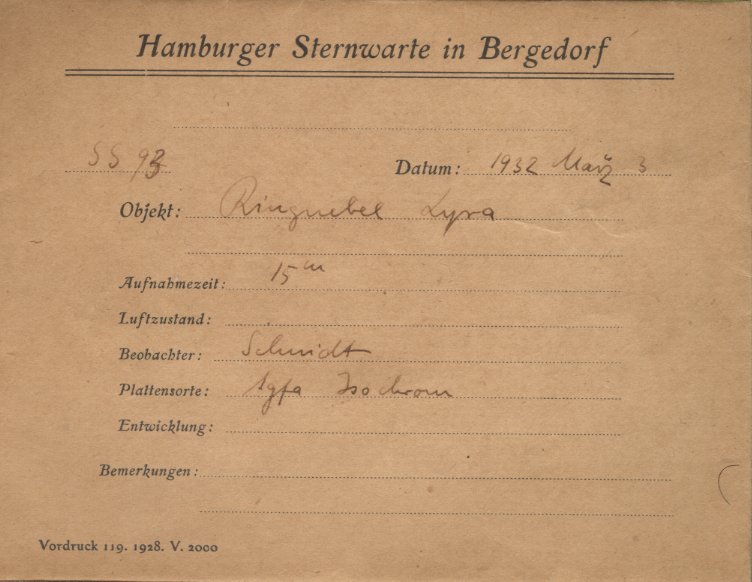 Hamburger Sternwarte in Bergedorf
SS 93 Datum: 1932 März 3
Objekt: Ringnebel Lyra
Aufnahmezeit: 15m
Luftzustand:
Beobachter: Schmidt
Plattensorte: Agfa Isochrom
Entwicklung:
Bemerkungen:
Vordruck 119. 1928. V. 2000